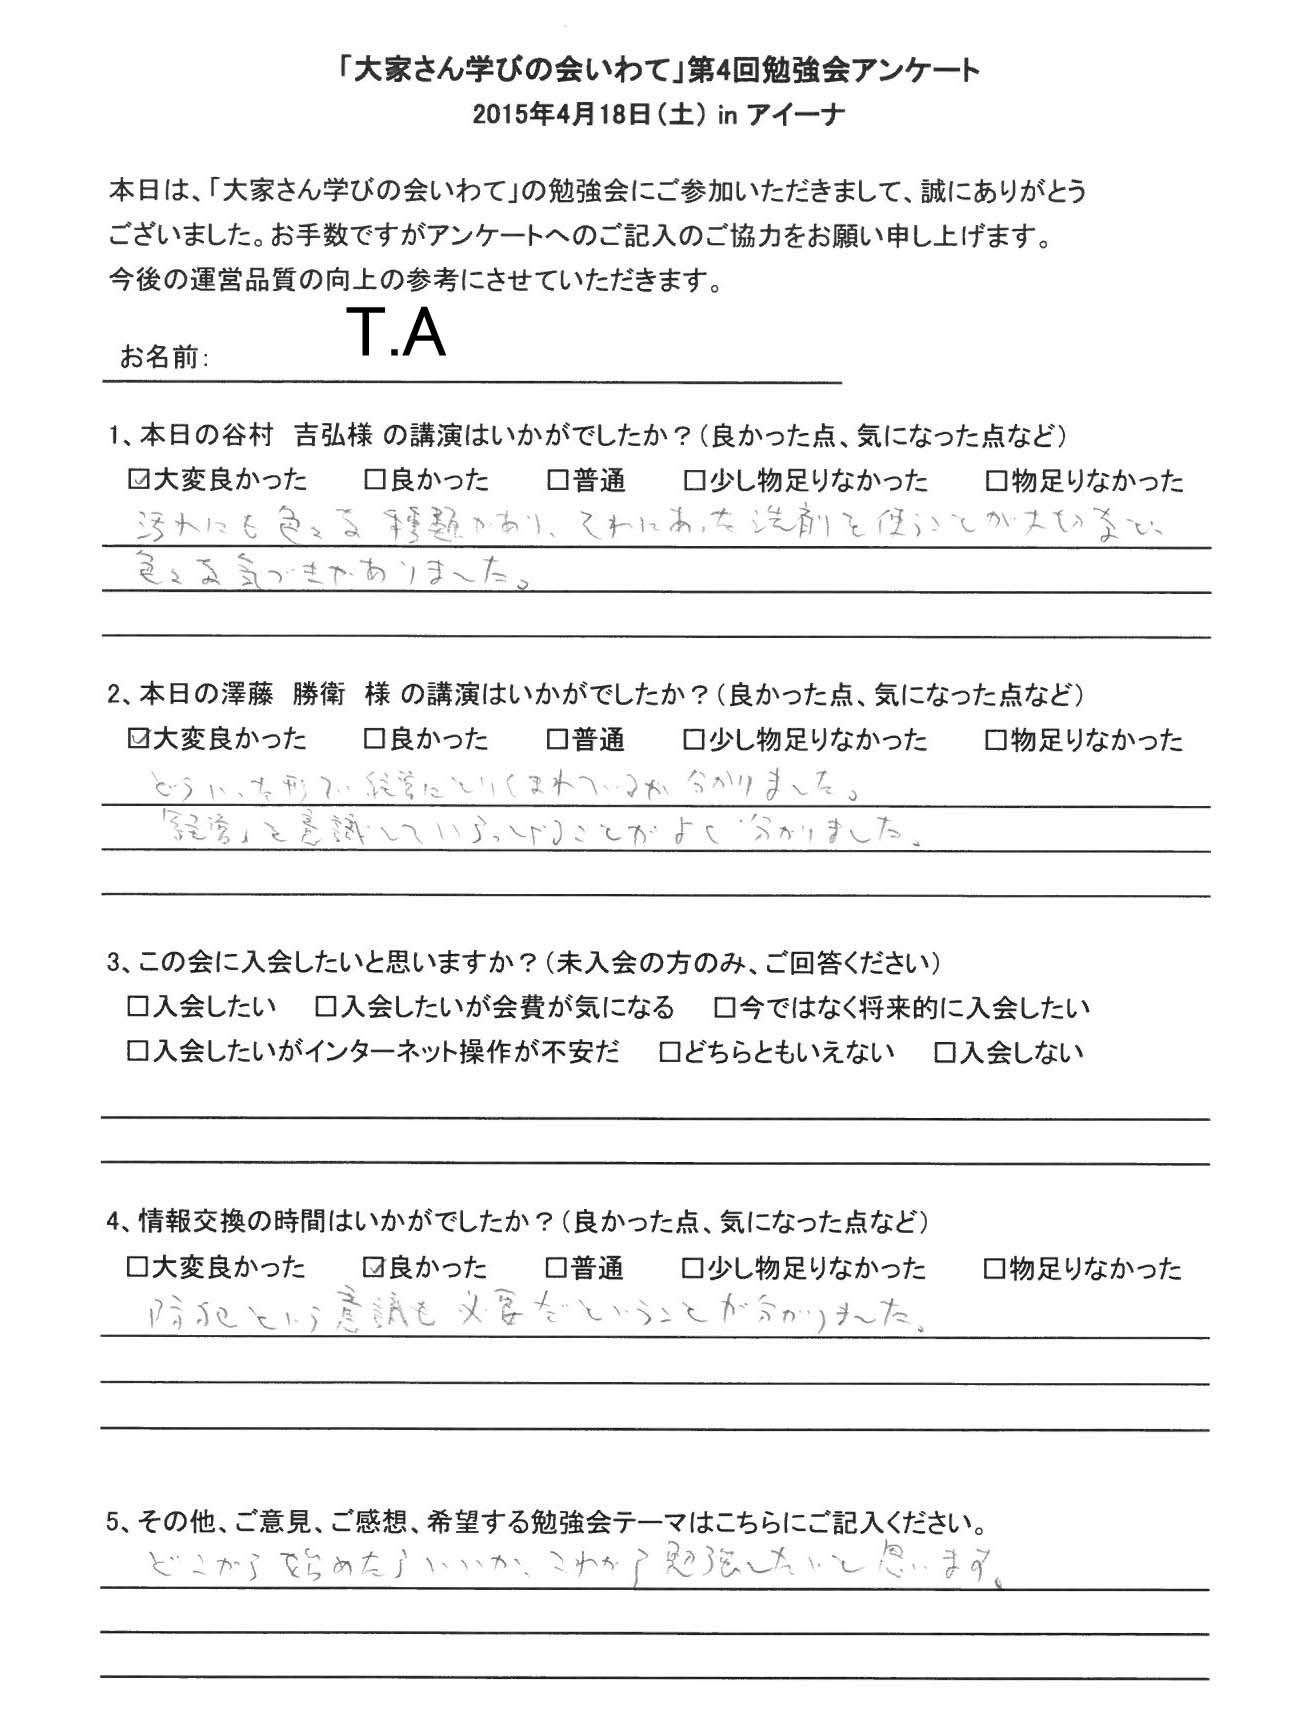 「大家さん学びの会いわて」第4回勉強会アンケート
2015年4月18日(土) in アイーナ
本日は、「大家さん学びの会いわて」の勉強会にご参加いただきまして、誠にありがとう
ございました。お手数ですがアンケートへのご記入のご協力をお願い申し上げます。
今後の運営品質の向上の参考にさせていただきます。
お名前: T.A
1、本日の谷村 吉弘様 の講演はいかがでしたか?(良かった点、気になった点など)
☑大変良かった □良かった □普通 □少し物足りなかった □物足りなかった
汚れにも色々な種類があり、それにあった洗剤を使うことが大切など、
色々な気づきがありました。
2、本日の澤藤 勝衛 様 の講演はいかがでしたか?(良かった点、気になった点など)
☑大変良かった □良かった □普通 □少し物足りなかった □物足りなかった
どういった形で経営にとりくまれているか分かりました。
「経営」を意識していらっしゃることがよく分かりました。
3、この会に入会したいと思いますか?(未入会の方のみ、ご回答ください)
□入会したい □入会したいが会費が気になる □今ではなく将来的に入会したい
□入会したいがインターネット操作が不安だ □どちらともいえない □入会しない
4、情報交換の時間はいかがでしたか?(良かった点、気になった点など)
□大変良かった ☑良かった □普通 □少し物足りなかった □物足りなかった
防犯という意識も必要だということが分かりました。
5、その他、ご意見、ご感想、希望する勉強会テーマはこちらにご記入ください。
どこから始めたらいいか、これから勉強したいと思います。